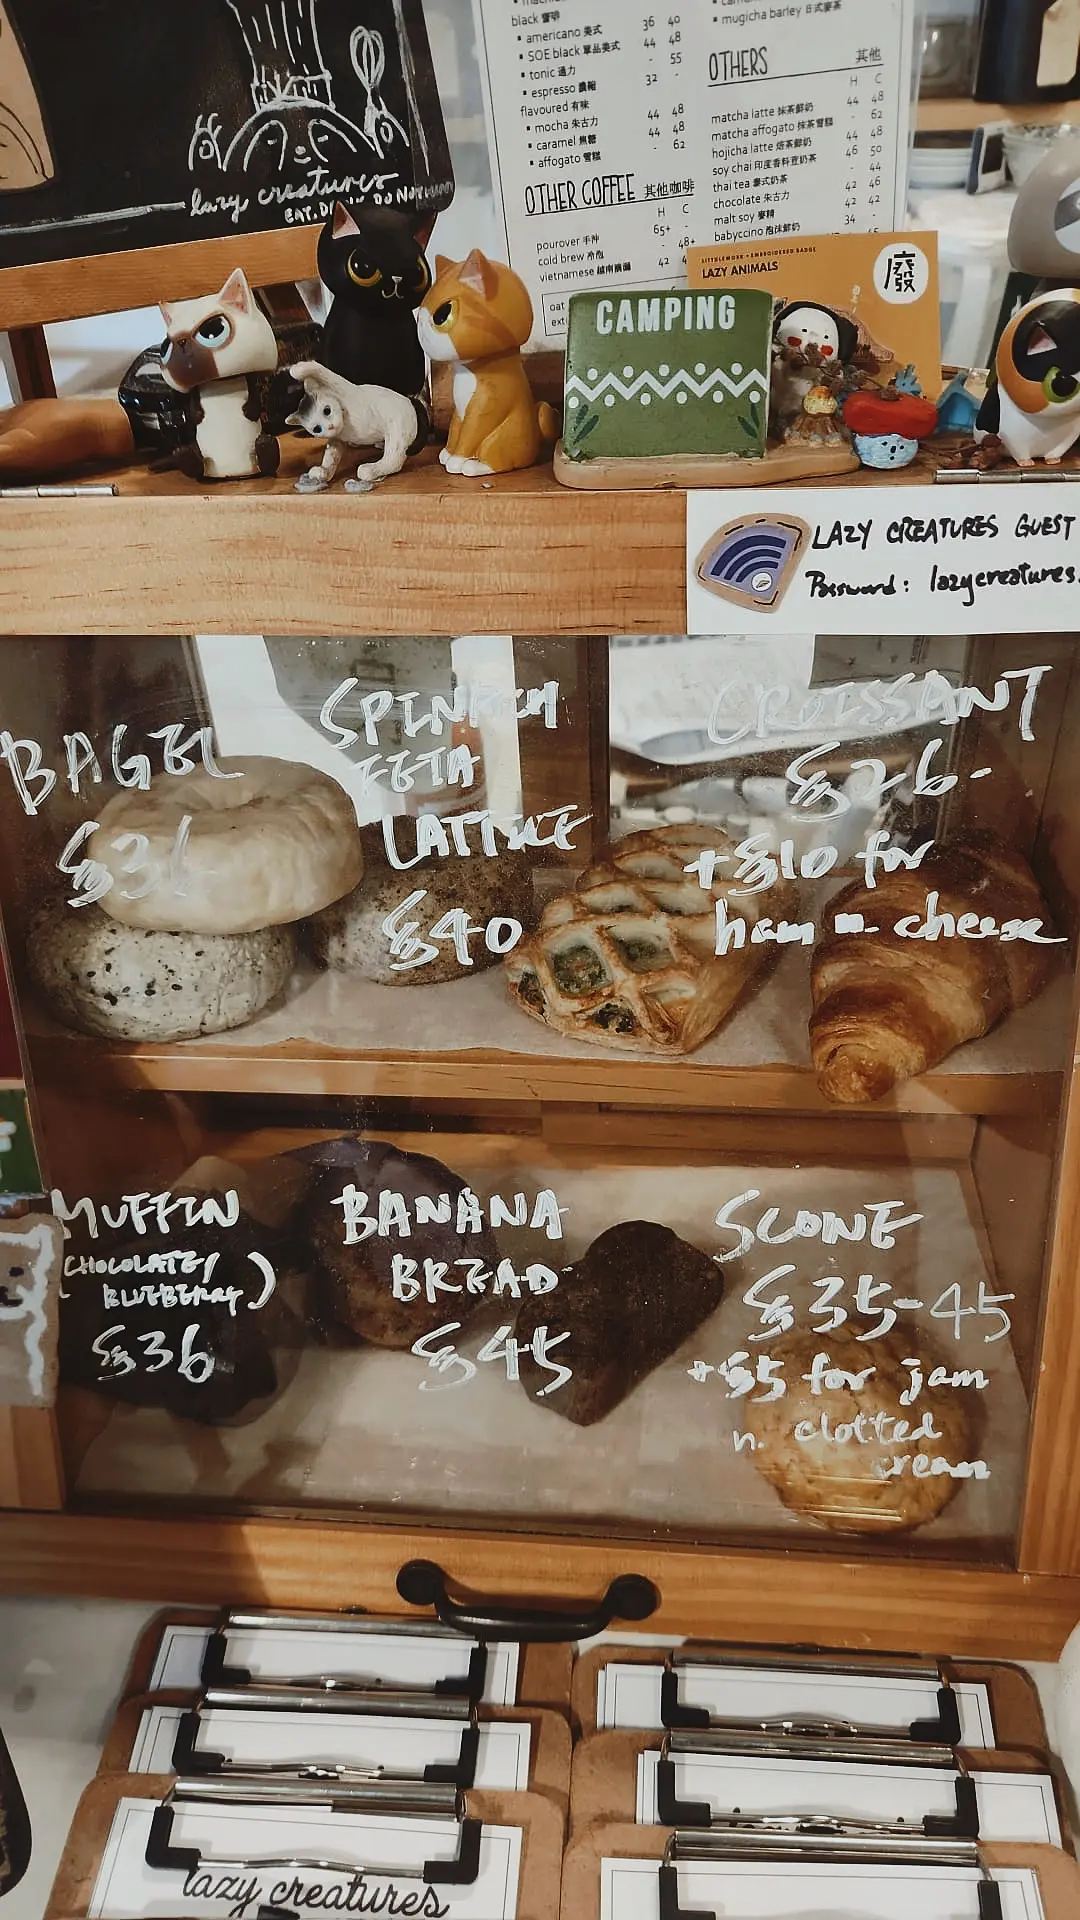 lazy creatures
black 齋啡
▪ americano 美式 36 40
▪ SOE black 單品美式 44 48
▪ tonic 通力 - 55
▪ espresso 濃縮 32 -
flavoured 有味
▪ mocha 朱古力 44 48
▪ caramel 焦糖 44 48
▪ affogato 雪糕 - 62
OTHER COFFEE 其他咖啡
H C
pourover 手沖 65+ -
cold brew 冷泡 - 48+
vietnamese 越南滴漏 42
oat
▪ mugicha barley 日式麥茶
OTHERS 其他
H C
matcha latte 抹茶鮮奶 44 48
matcha affogato 抹茶雪糕 - 62
hojicha latte 焙茶鮮奶 44 48
soy chai 印度香料豆奶茶 46 50
thai tea 泰式奶茶 - 44
chocolate 朱古力 42 46
malt soy 麥精 42 42
babyccino 泡沫鮮奶 34 -
LITTLEMOSS • EMBROIDERED BADGE
LAZY ANIMALS
廢
CAMPING
LAZY CREATURES GUEST
Password: lazycreatures.
BAGEL
$36
SPINACH
FETA
LATTICE
$40
CROISSANT
$26-
+$10 for
ham n. cheese
MUFFIN
(CHOCOLATE/
BLUEBERRY)
$36
BANANA
BREAD
$45
SCONE
$35-45
+$5 for jam
n. clotted
cream
lazy creatures